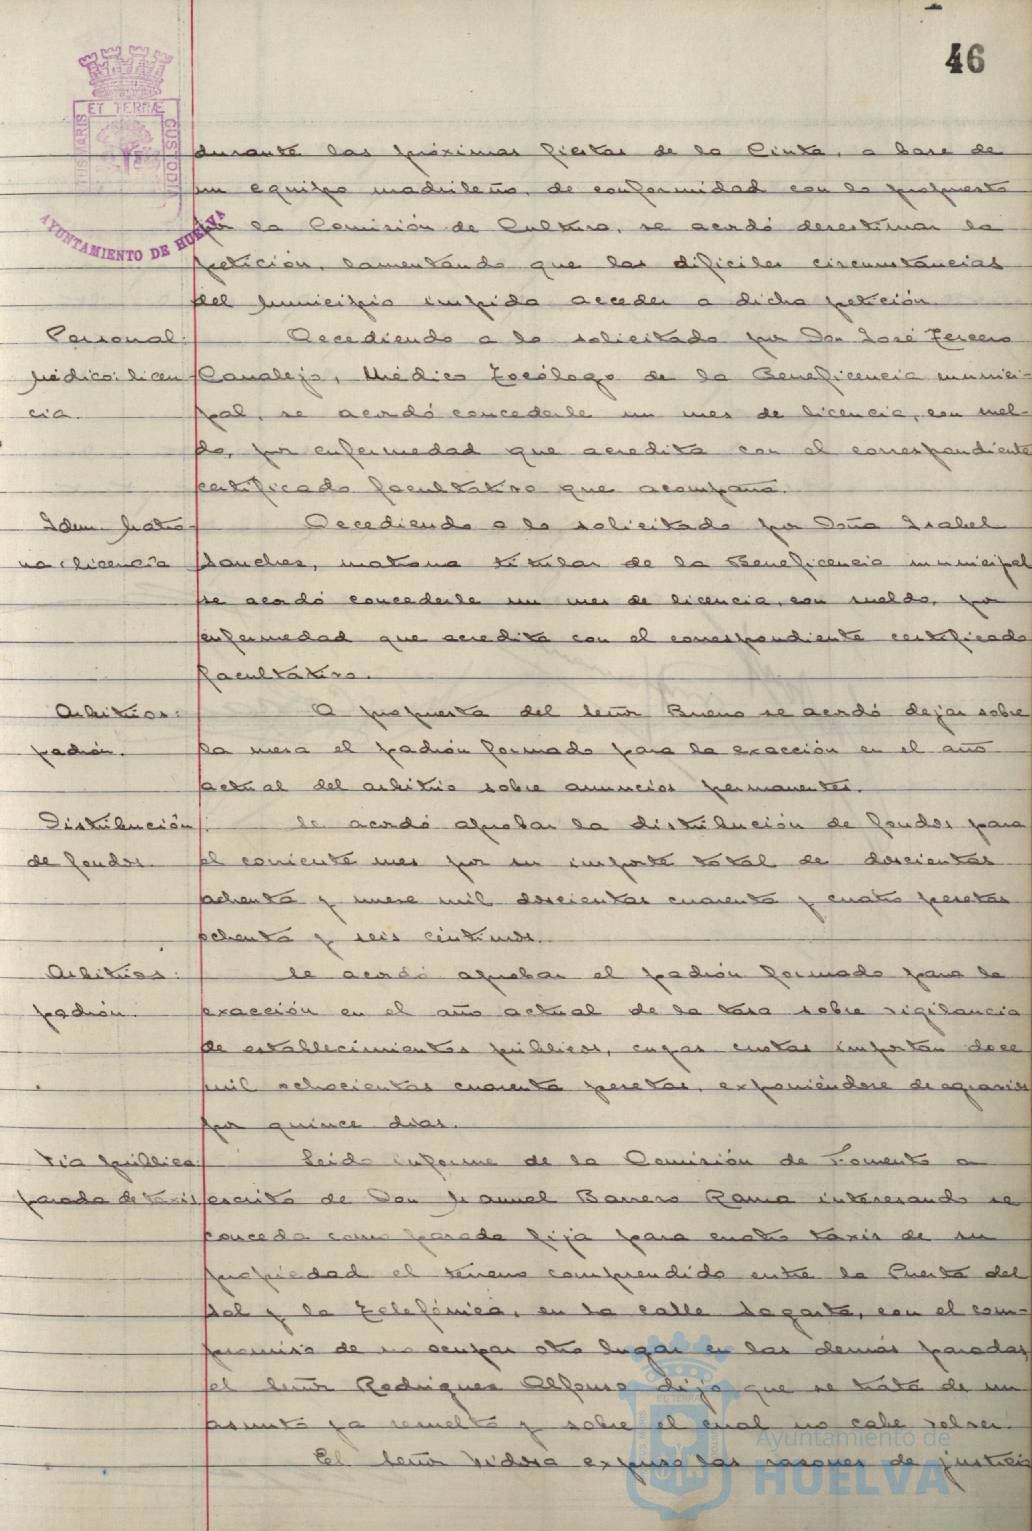 46
ET TERRÆ
CUSTODIA
AYUNTAMIENTO DE HUELVA
durante las próximas fiestas de la Cinta, a base de
un equipo madrileño, de conformidad con lo propuesto
por la Comisión de Cultura, se acordó desestimar la
petición, lamentando que las dificiles circunstancias
del Municipio impida acceder a dicha petición.
Personal: Accediendo a lo solicitado por Don José Tercero
Médico: licen Canalejo, Médico Tocólogo de la Beneficencia munici-
cia. pal, se acordó concederle un mes de licencia, con suel-
do, por enfermedad que acredita con el correspondiente
certificado facultativo que acompaña.
Idem. Matro- Accediendo a lo solicitado por Doña Isabel
na: licencia Sanchez, matrona titular de la Beneficencia municipal
se acordó concederle un mes de licencia, con sueldo, por
enfermedad que acredita con el correspondiente certificado
facultativo.
Arbitrios: A propuesta del Señor Bueno se acordó dejar sobre
padrón. la mesa el padrón formado para la exacción en el año
actual del arbitrio sobre anuncios permanentes.
Distribución Se acordó aprobar la distribución de fondos para
de fondos. el corriente mes por su importe total de doscientas
ochenta y nueve mil doscientas cuarenta y cuatro pesetas
ochenta y seis céntimos.
Arbitrios: Se acordó aprobar el padrón formado para la
padrón. exacción en el año actual de la tasa sobre vigilancia
de establecimientos públicos, cuyas cuotas importan doce
mil ochocientas cuarenta pesetas, exponiéndose de agravios
por quince dias.
Via pública: Leido informe de la Comisión de Fomento a
parada de taxis escrito de Don Manuel Barrero Rama interesando se
conceda como parada fija para cuatro taxis de su
propiedad el terreno comprendido entre la Puerta del
Sol y la Telefónica, en la calle Sagasta, con el com-
promiso de no ocupar otro lugar en las demás paradas,
el Señor Rodriguez Alfonso dijo que se trata de un
asunto ya resuelto y sobre el cual no cabe volver.
El Señor Vidosa expuso las razones de justicia
Ayuntamiento de
HUELVA